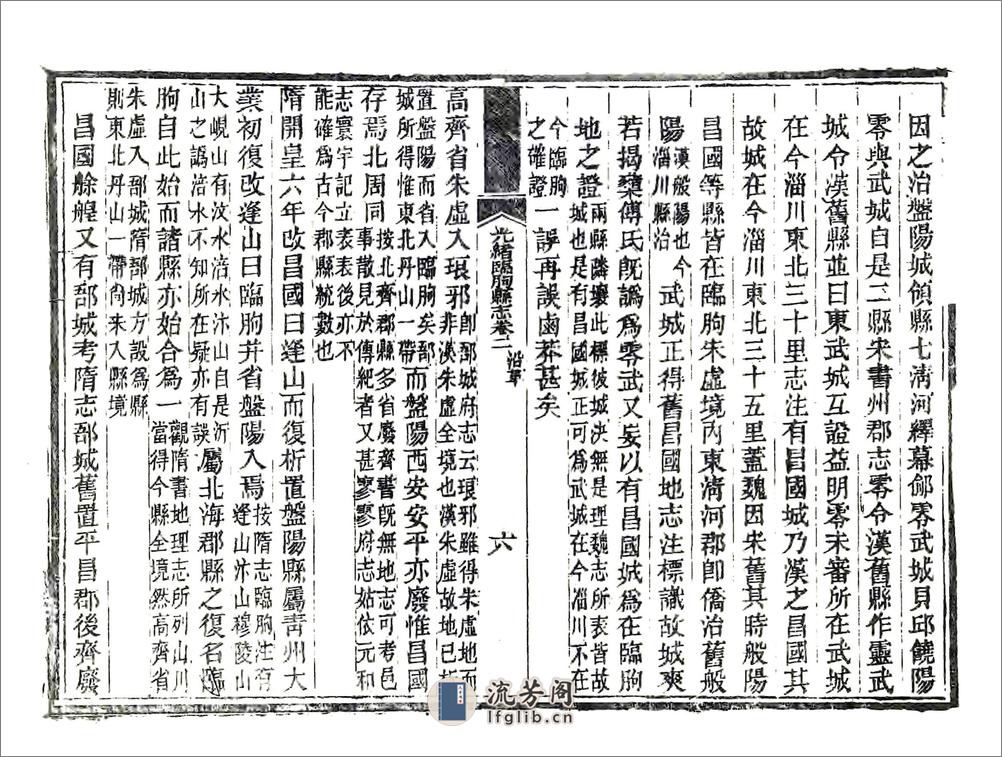 因之治盤陽城領縣七淸河繹幕鄃零武城貝邱饒陽
零與武城自是二縣宋書州郡志零令漢舊縣作靈武
城令漢舊縣並曰東武城互證益明零未審所在武城
在今淄川東北三十里志注有昌國城乃漢之昌國其
故城在今淄川東北三十五里蓋魏因宋舊其時般陽
昌國等縣皆在臨朐朱虛境內東淸河郡卽僑治舊般
陽漢般陽也今淄川縣治武城正得舊昌國地志注標識故城爽
若揭櫫傅氏旣譌爲零武又妄以有昌國城爲在臨朐
地之證兩縣鄰壤此標彼城決無是理魏志所表皆故城也是有昌國城正可爲武城在今淄川不在今臨朐之確證一誤再誤鹵莽甚矣
高齊省朱虛入琅邪卽郚城府志云琅邪雖得朱虛地而非漢朱虛全境也漢朱虛故地已析置盤陽而省入臨朐矣郚城所得惟東北丹山一帶而盤陽西安安平亦廢惟昌國
存焉北周同按北齊郡縣多省廢齊書旣無地志可考邑事散見於傳紀者又甚寥寥府志姑依元和志寰宇記立表表後亦不能確爲古今郡縣統數也
隋開皇六年改昌國曰逄山而復析置盤陽縣屬靑州大
業初復改逄山曰臨朐幷省盤陽入焉按隋志臨朐注有逄山沂山穆陵山大峴山有汶水浯水沂山自是沂山之譌浯水不知所在疑亦有誤屬北海郡縣之復名臨
朐自此始而諸縣亦始合爲一觀隋書地理志所列山川當得今縣全境然高齊省朱虛入郚城隋郚城方設爲縣則東北丹山一帶尙未入縣境
昌國艅艎又有郚城考隋志郚城舊置平昌郡後齊廢
光緖臨朐縣志卷二
沿革
六
流芳阁
lfglib.cn